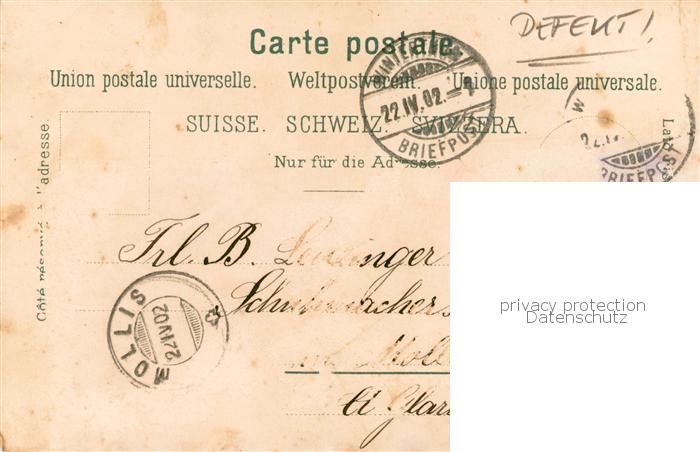 DEFEKT!
Carte postale.
Union postale universelle. Weltpostverein. Unione postale universale.
SUISSE. SCHWEIZ. SVIZZERA.
Nur für die Adresse.
WINTERTHUR
22.IV.02.
BRIEFPOST
W
22.IV
BRIEFPOST
Côté réservé à l'adresse.
Lato
Frl. B. Leuzinger
Schuhmachers
Moll
bei Glar
MOLLIS
22 IV 02
privacy protection
Datenschutz